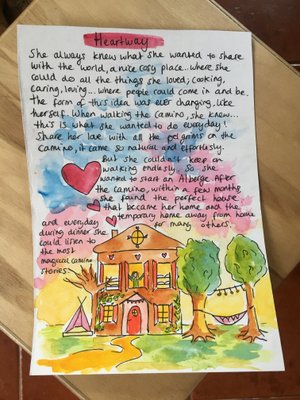 Heartway
She always knew what she wanted to share
with the world, a nice cosy place.. where she
could do all the things she loved; cooking,
caring, loving... where people could come in and be.
the form of this idea was ever changing, like
herself. When walking the camino, she knew...
this is what she wanted to do everyday!
Share her love with all the pelgrims on the
Camino, it came so natural and effortlessly.
But she couldn't keep on
walking endlessly. So she
wanted to start an Alberge. After
the camino, within a few months
she found the perfect house
that became her home and the
temporary home away from home
for many others.
and everyday
during dinner she
could listen to
the most
magical camino
stories.